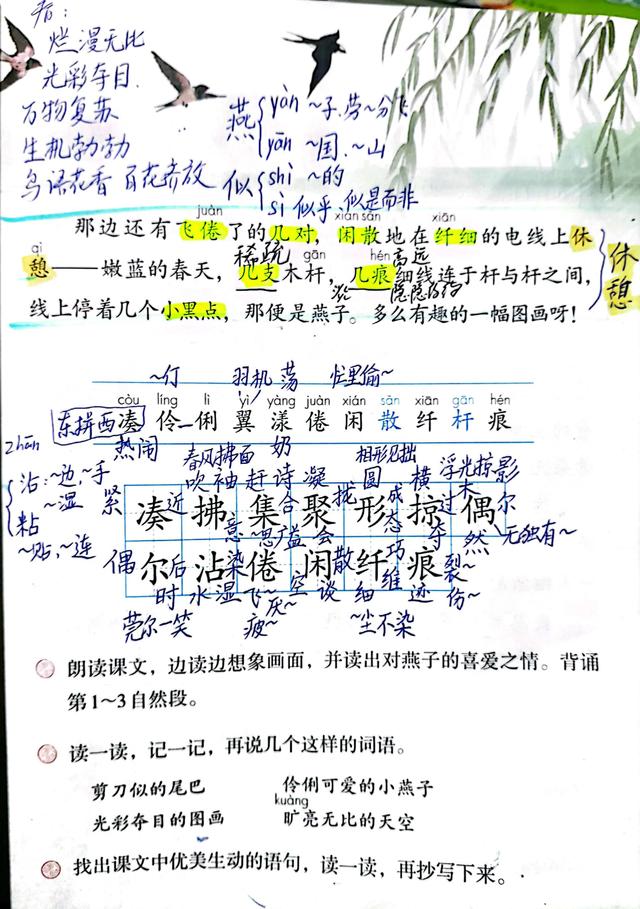 烂漫无比
光彩夺目
万物复苏
生机勃勃
鸟语花香 百花齐放
燕 yàn ~子.劳~分飞
yān ~国.~山
似 shì ~的
sì 似乎.似是而非
juàn xián sǎn xiān
那边还有飞倦了的几对，闲散地在纤细的电线上休
qì 稀疏 gān hén 高远
憩——嫩蓝的春天，几支木杆，几痕细线连于杆与杆之间，
休憩
线上停着几个小黑点，那便是燕子。多么有趣的一幅图画呀！
~仃 羽机 荡 忙里偷~
còu líng lì yì yàng juàn xián sǎn xiān gān hén
东拼西凑 伶 俐 翼 漾 倦 闲 散 纤 杆 痕
zhān 热闹 春风拂面 奶 相形见拙 浮光掠影
沾:~边,~手
~湿
粘
~贴,~连
吹袖 赶诗凝 圆 横
紧凑近拂集合聚找形成掠过偶尔
意 思 益会 态 夺 然 无独有~
偶尔后沾染倦闲散纤巧痕裂~
时 水湿 飞~ 空 谈 细 维 迹 伤~
莞尔一笑 疲~ 厌~ ~尘不染
朗读课文，边读边想象画面，并读出对燕子的喜爱之情。背诵
第1～3自然段。
读一读，记一记，再说几个这样的词语。
剪刀似的尾巴 伶俐可爱的小燕子
kuàng
光彩夺目的图画 旷亮无比的天空
找出课文中优美生动的语句，读一读，再抄写下来。